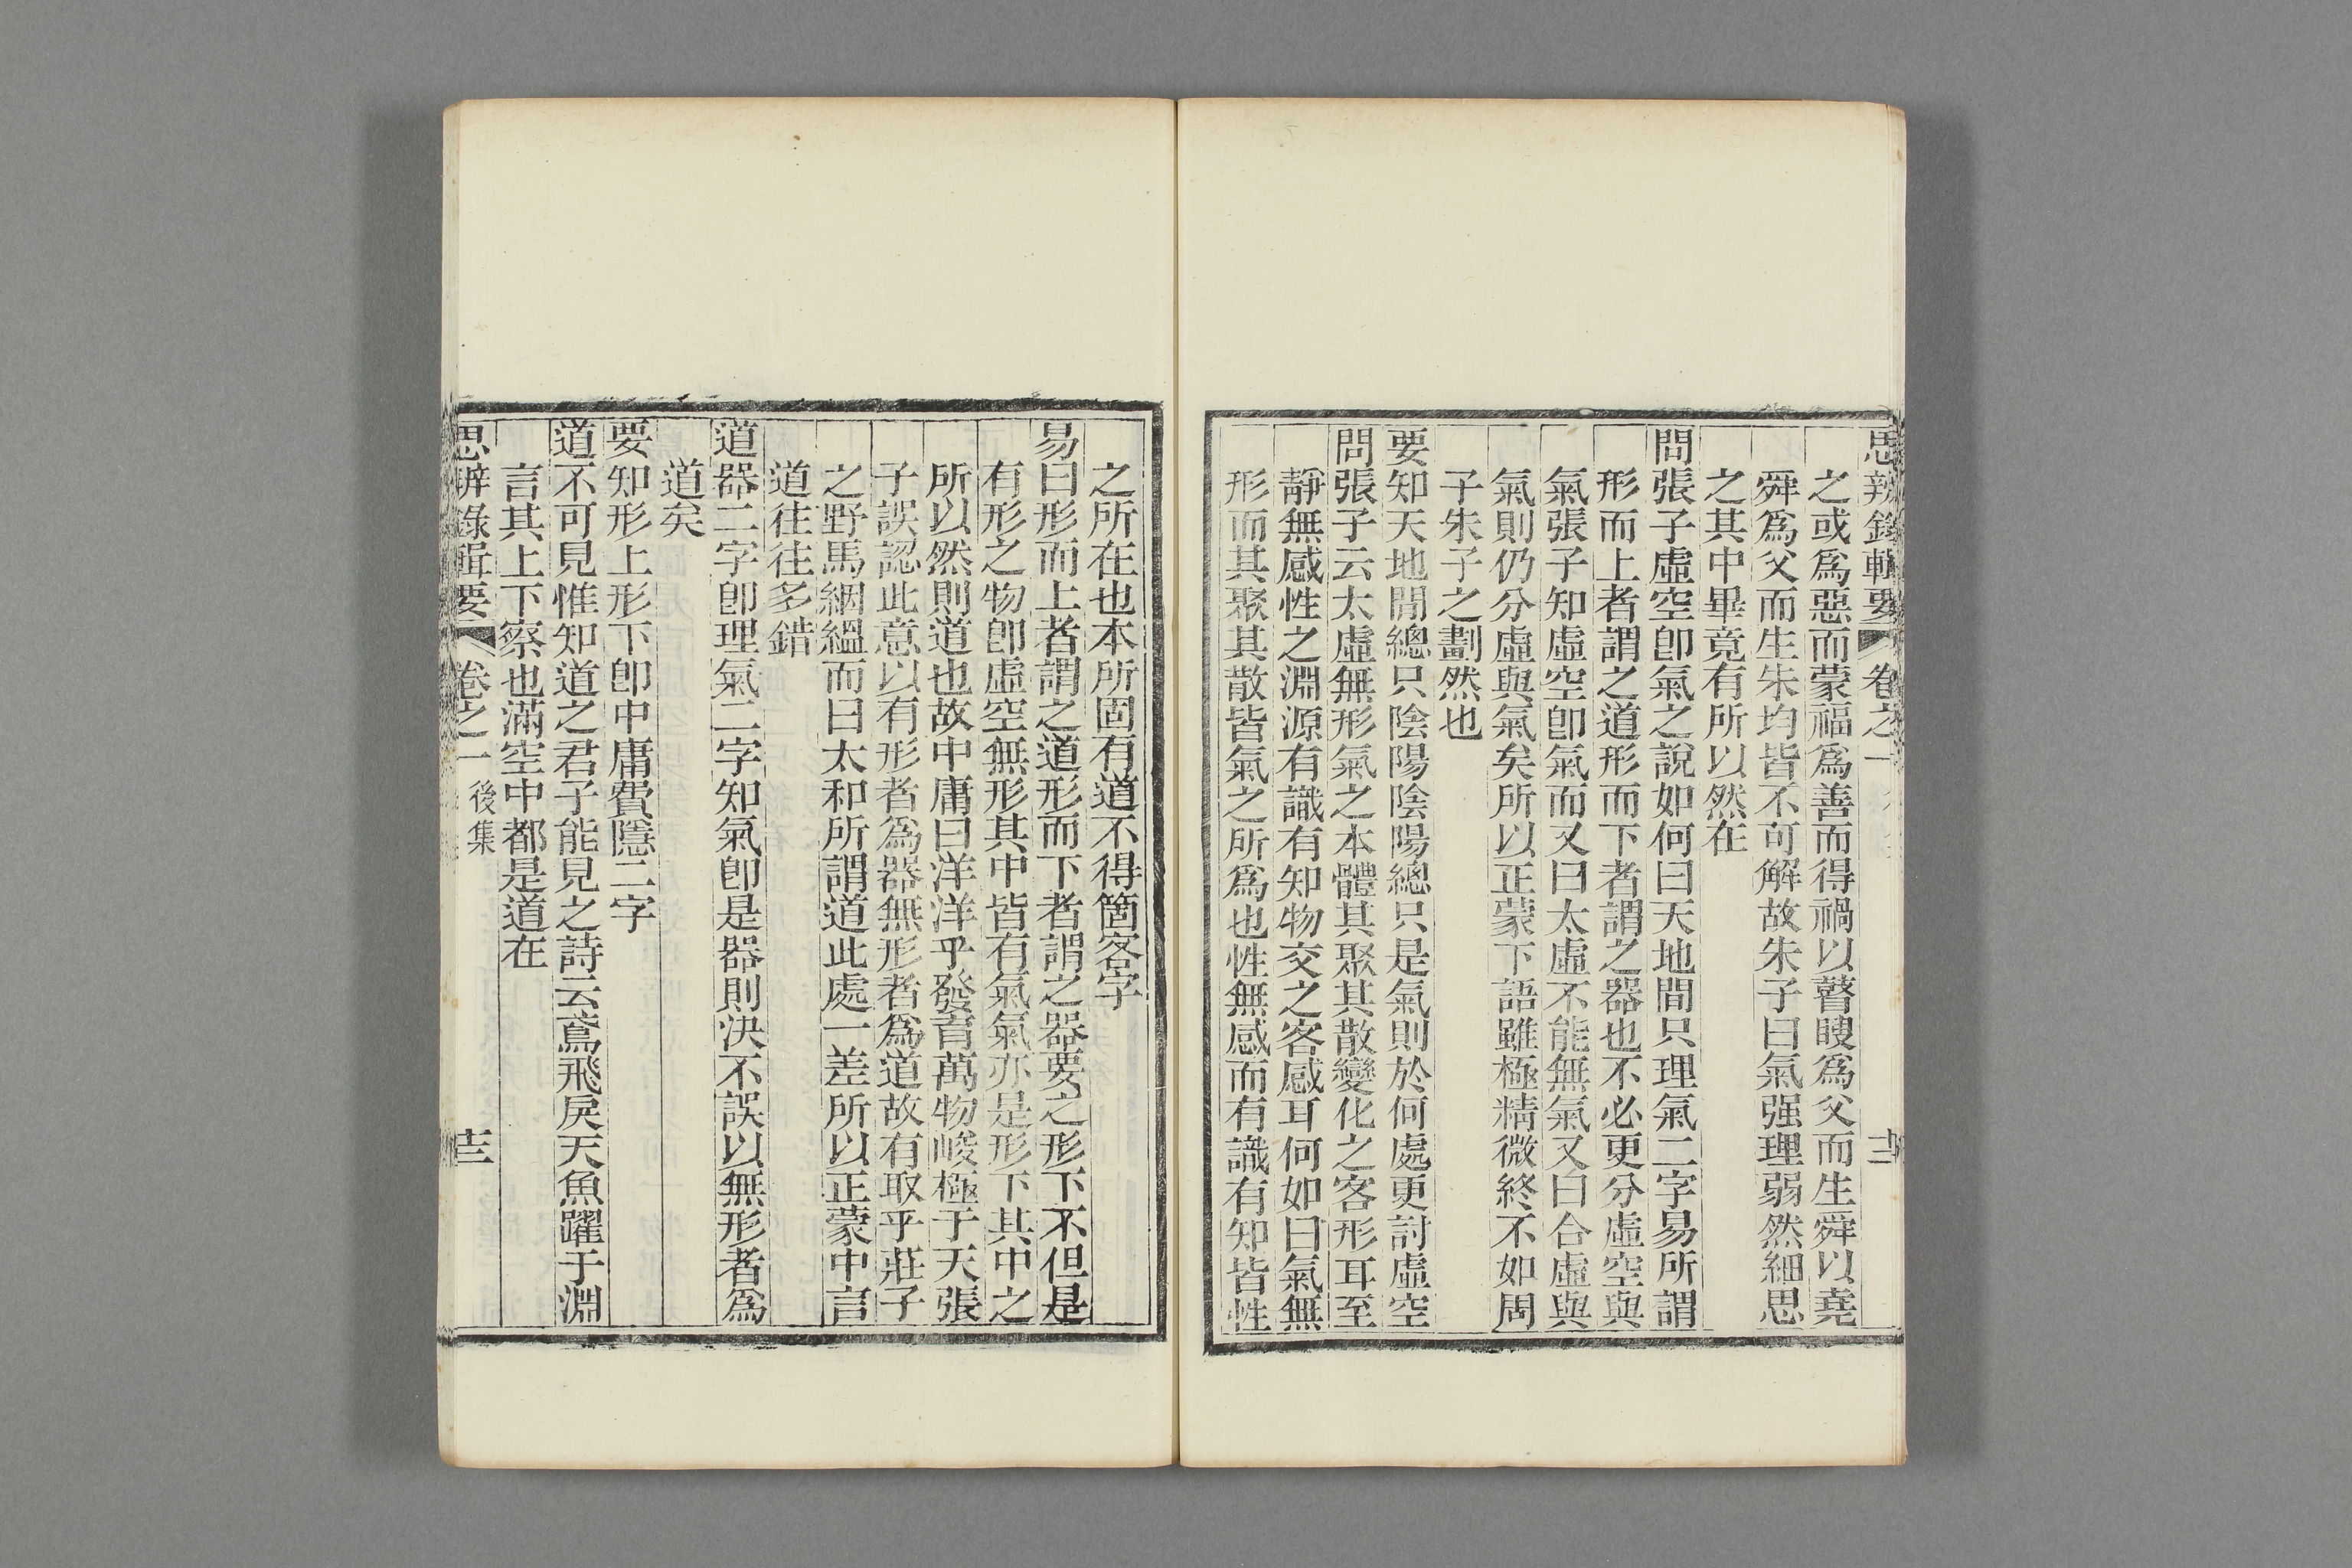 思辨錄輯要 卷之一
之或爲惡而蒙福爲善而得禍以瞽瞍爲父而生舜以堯
舜爲父而生朱均皆不可解故朱子曰氣强理弱然細思
之其中畢竟有所以然在
問張子虛空卽氣之說如何曰天地間只理氣二字易所謂
形而上者謂之道形而下者謂之器也不必更分虛空與
氣張子知虛空卽氣而又曰太虛不能無氣又曰合虛與
氣則仍分虛與氣矣所以正蒙下語雖極精微終不如周
子朱子之劃然也
要知天地閒總只陰陽陰陽總只是氣則於何處更討虛空
問張子云太虛無形氣之本體其聚其散變化之客形耳至
靜無感性之淵源有識有知物交之客感耳何如曰氣無
形而其聚其散皆氣之所爲也性無感而有識有知皆性
之所在也本所固有道不得箇客字
易曰形而上者謂之道形而下者謂之器要之形下不但是
有形之物卽虛空無形其中皆有氣氣亦是形下其中之
所以然則道也故中庸曰洋洋乎發育萬物峻極于天張
子誤認此意以有形者爲器無形者爲道故有取乎莊子
之野馬絪縕而曰太和所謂道此處一差所以正蒙中言
道往往多錯
道器二字卽理氣二字知氣卽是器則決不誤以無形者爲
道矣
要知形上形下卽中庸費隱二字
道不可見惟知道之君子能見之詩云鳶飛戾天魚躍于淵
言其上下察也滿空中都是道在
思辨錄輯要 卷之一 後集 十三